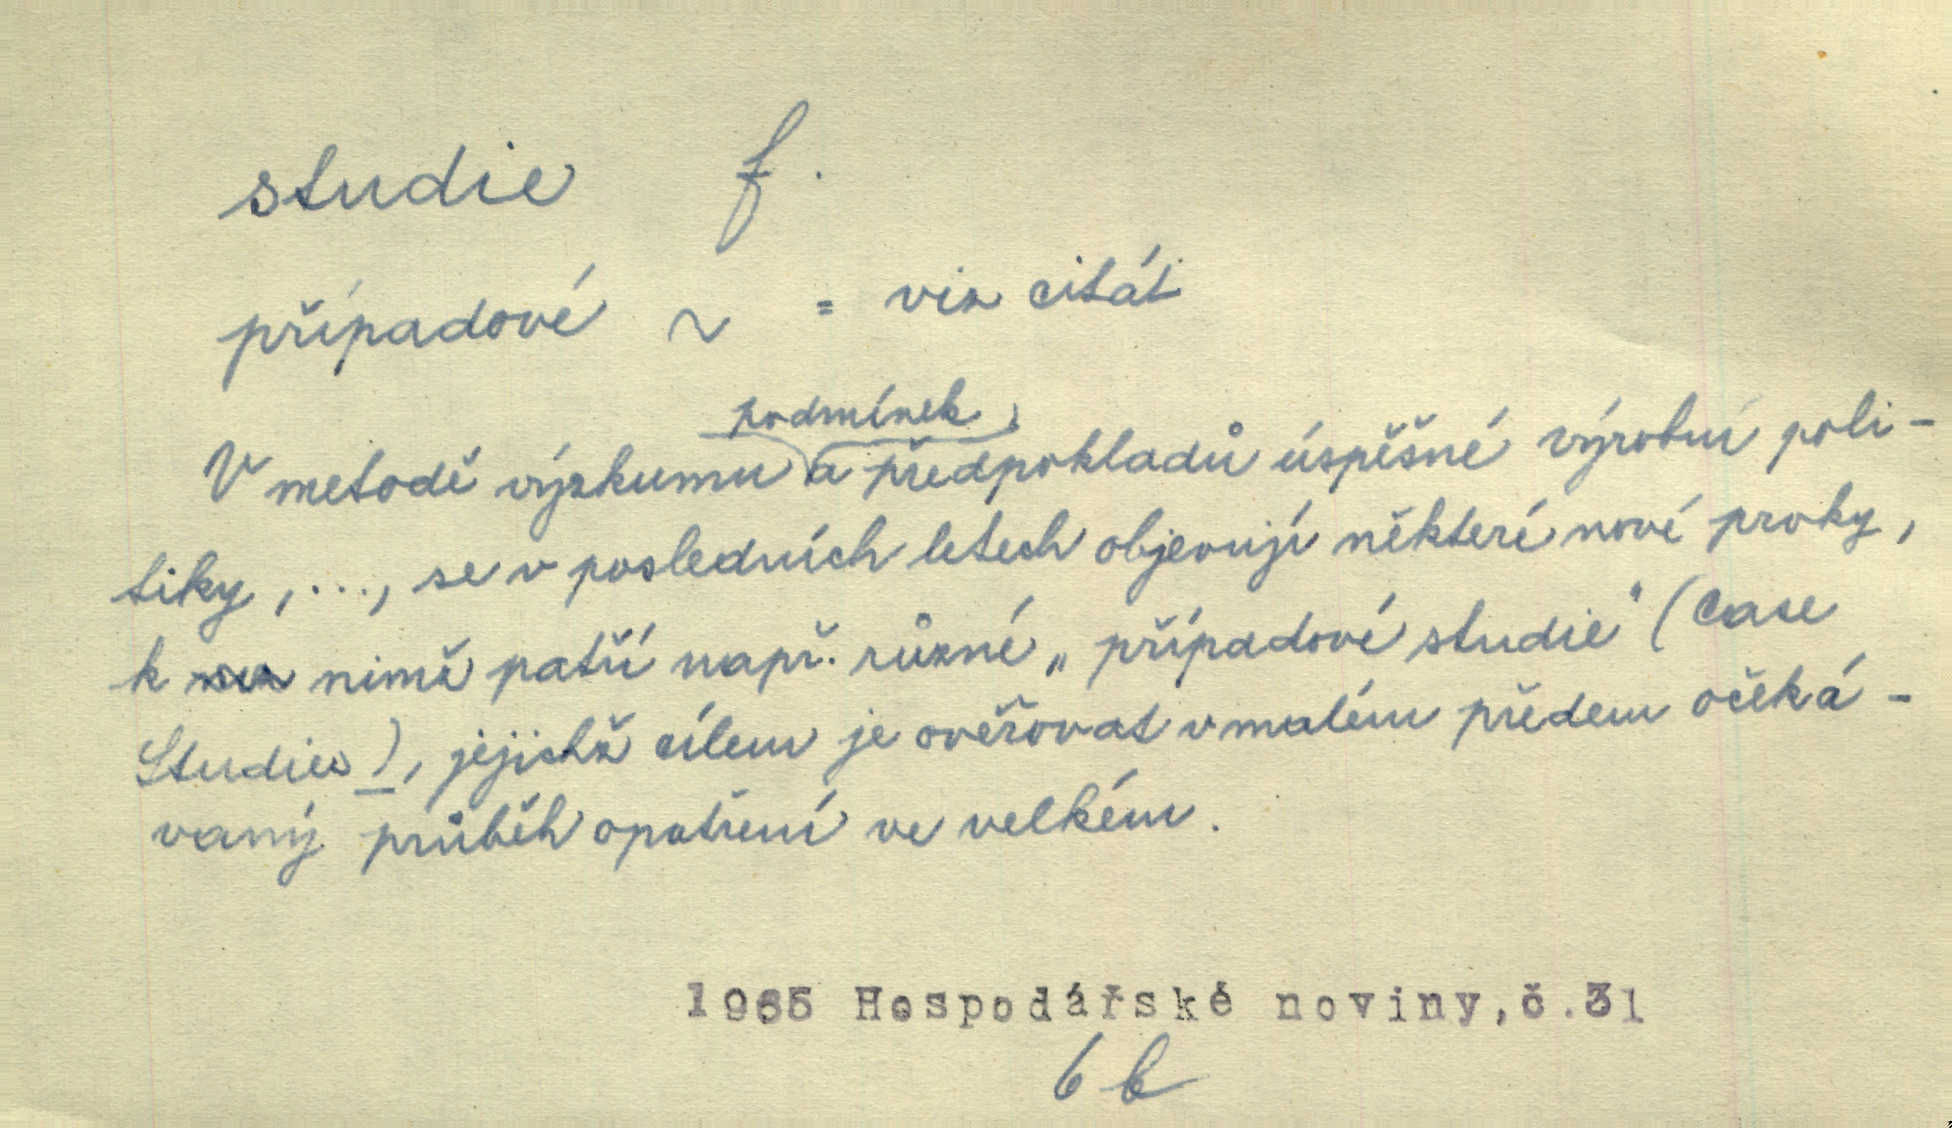 studie f.
případové ~ = viz citát
podmínek
V metodě výzkumu a předpokladů úspěšné výrobní poli-
tiky, ..., se v posledních letech objevují některé nové prvky,
k nimž patří např. různé „případové studie" (Case
Studies), jejichž cílem je ověřovat v malém předem očeká-
vaný průběh opatření ve velkém.
1965 Hospodářské noviny, č. 31
6 b